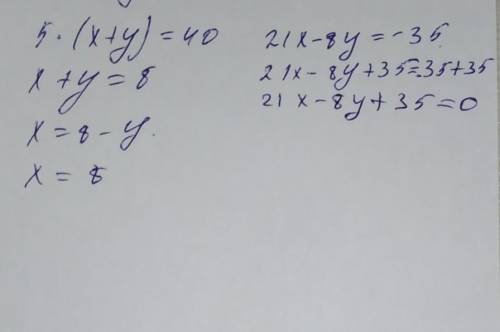 5·(x+y)=40
x+y=8
x=8-y.
x=8
21x-8y=-35.
21x-8y+35=-35+35
21x-8y+35=0